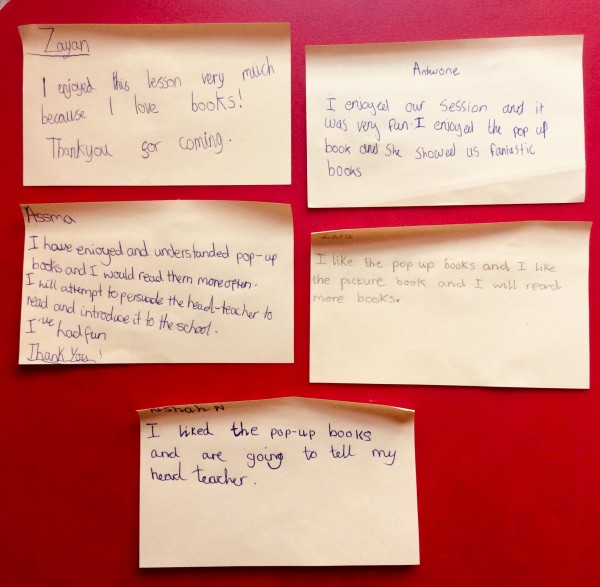 Zayan
I enjoyed this lesson very much
because I love books!
Thankyou for coming.
Antwone
I enjoyed our session and it
was very fun-I enjoyed the pop up
book and she showed us fantastic
books
Assma
I have enjoyed and understanded pop-up
books and I would read them more often.
I will attempt to persuade the head-teacher to
read and introduce it to the school.
I've had fun
Thank You!
Zara
I like the pop up books and I like
the picture book and I will read
more books.
I liked the pop-up books
and are going to tell my
head teacher.